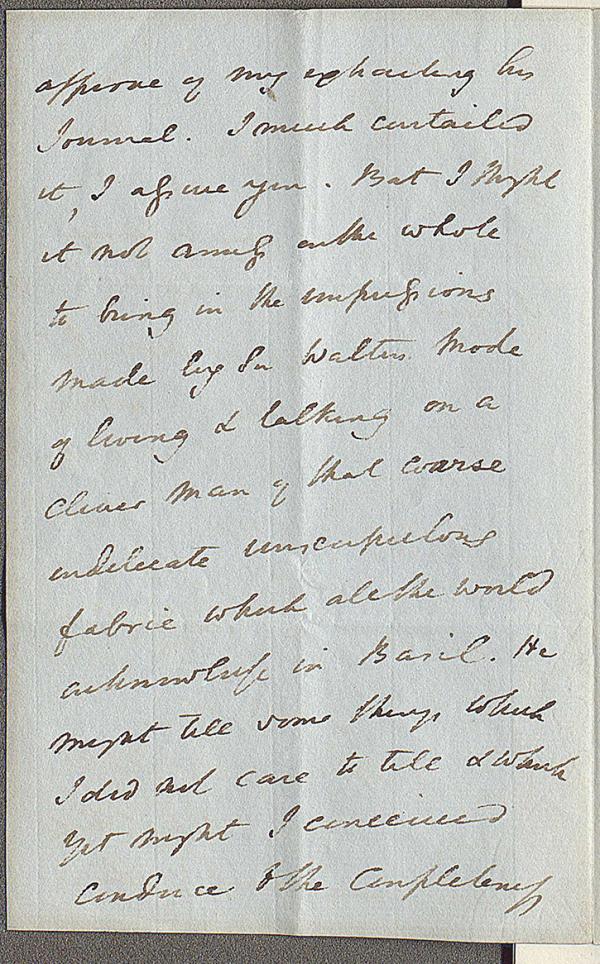 approve of my exhausting his
Journal. I much curtailed
it, I assure you. But I thought
it not amiss on the whole
to bring in the impressions
made by Sir Walter's mode
of living & talking on a
clever man of that coarse
indelicate unscrupulous
fabric which all the world
acknowledge in Basil. He
might tell some things which
I did not care to tell & which
yet might I conceived
conduce to the completeness